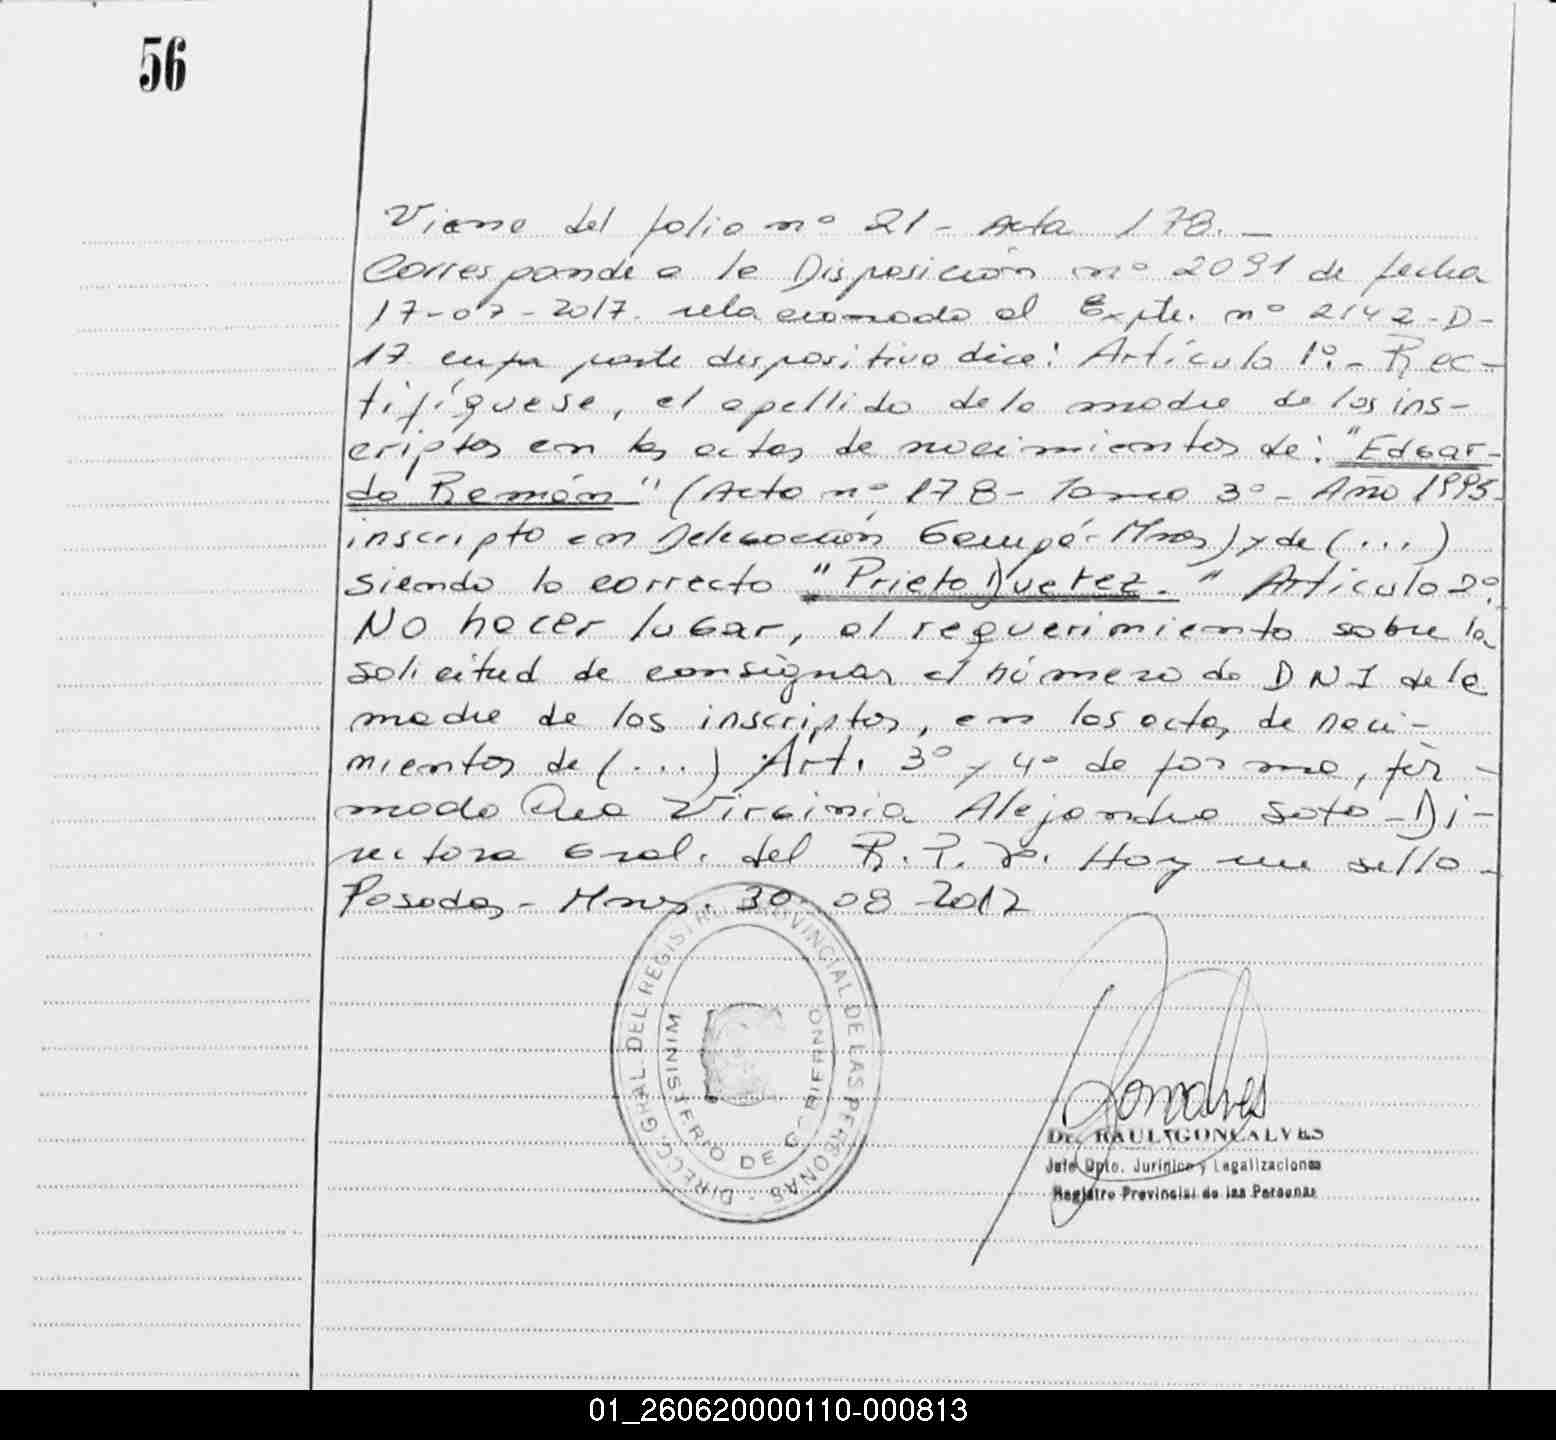 56
Viene del folio nº 21 - Acta 178. -
Corresponde a la Disposición nº 2091 de fecha
17-07-2017. relacionado al Expte. nº 2142-D-
17 cuya parte dispositiva dice: Artículo 1º. - Rec-
tifíquese, el apellido de la madre de los ins-
criptos en las actas de nacimientos de: "Edgar-
do Ramón" (Acta nº 178 - Tomo 3º - Año 1995
inscripto en Delegación Garupá - Mnes) y de (...)
siendo lo correcto "Prieto Duetez." Artículo 2º.
No hacer lugar, al requerimiento sobre la
solicitud de consignar el número de DNI de la
madre de los inscriptos, en las actas de naci-
mientos de (...) Art. 3º y 4º de forma, fir-
mado Dra Virginia Alejandra Soto - Di-
rectora Gral. del R. P. P. Hay un sello -
Posadas - Mnes. 30-08-2017
DIRECC. GRAL. DEL REGISTRO PROVINCIAL DE LAS PERSONAS
MINISTERIO DE GOBIERNO
Goncalves
Dr. RAUL GONCALVES
Jefe Dpto. Jurídico y Legalizaciones
Registro Provincial de las Personas
01_260620000110-000813